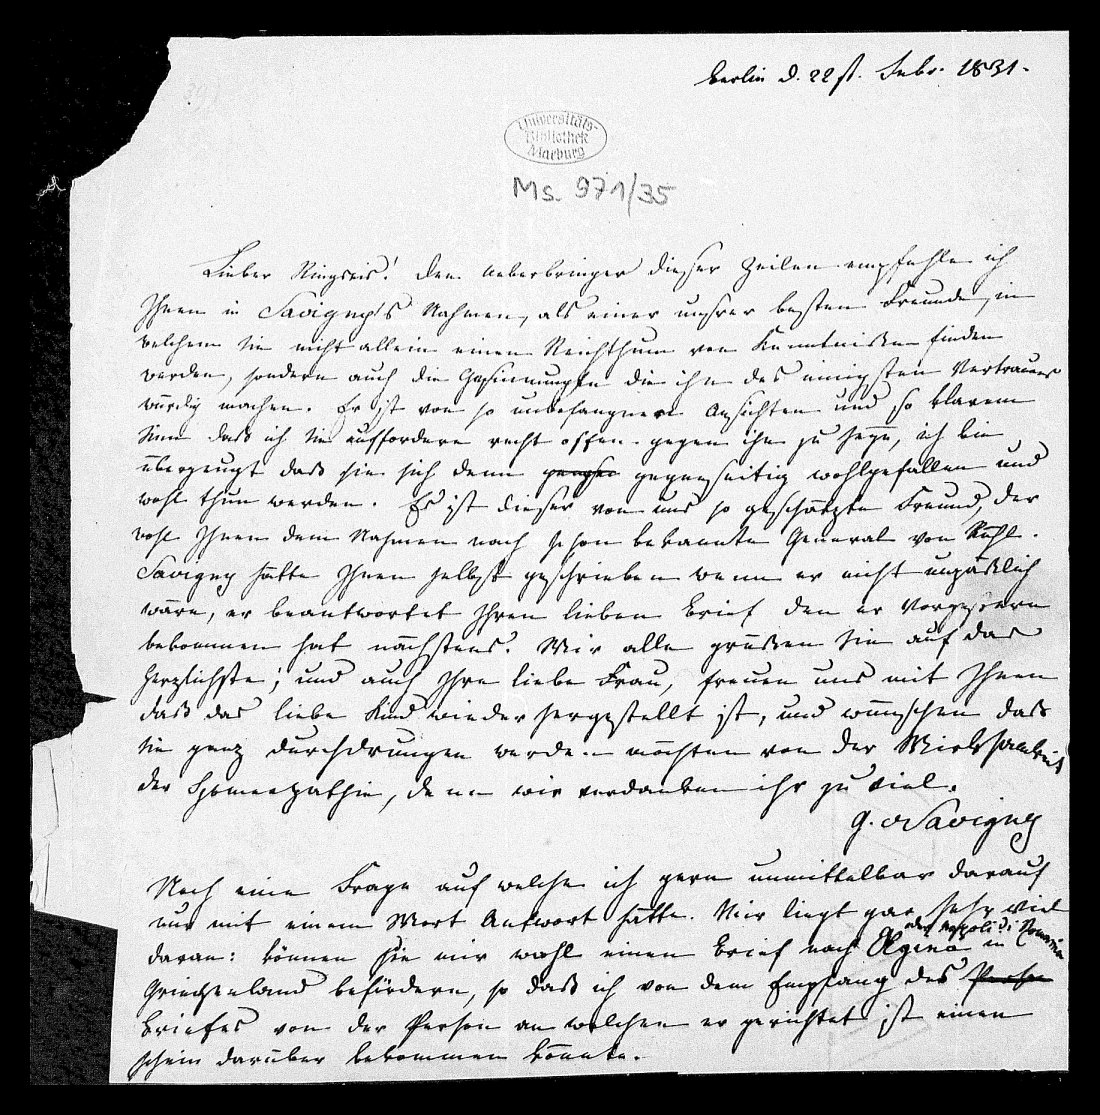 Berlin d. 22st. Febr. 1831.
Universitäts-
Bibliothek
Marburg
Ms. 971/35
Lieber Ringseis! Dem Ueberbringer dieser Zeilen empfehle ich
Ihnen in Savigny's Nahmen, als einer unsrer besten Freunde, in
welchem Sie nicht allein einen Reichthum von Kenntnißen finden
werden, sondern auch die Gesinnungen die ihn des innigsten Vertrauens
würdig machen. Er ist von so unbefangnen Ansichten und so klarem
Sinn daß ich Sie auffordere recht offen gegen ihn zu seyn, ich bin
überzeugt daß sie sich denn gegenseitig wohlgefallen und
wohl thun werden. Es ist dieser von uns so geschätzte Freund, der
wohl Ihnen dem Nahmen nach schon bekannte General von Rühl.
Savigny hätte Ihnen selbst geschrieben wenn er nicht unpäßlich
wäre, er beantwortet Ihren lieben Brief den er Vorgestern
bekommen hat nächstens. Wir alle grüßen Sie auf das
herzlichste; und auch Ihre liebe Frau, freuen uns mit Ihnen
daß das liebe Kind wieder hergestellt ist, und wünschen daß
Sie ganz durchdrungen werden möchten von der Wirksamkeit
der Homeopathie, denn wir verdanken ihr zu viel.
G. v Savigny
Noch eine Frage auf welche ich gern unmittelbar darauf
nur mit einem Wort Antwort hätte. Mir liegt gar sehr viel
oder Napoli di Romania
daran: können Sie mir wohl einen Brief nach Egena in
Griechenland befördern, so daß ich von dem Empfang des Person
Briefes von der Person an welchen er gerichtet ist einen
Schein darüber bekommen könnte.